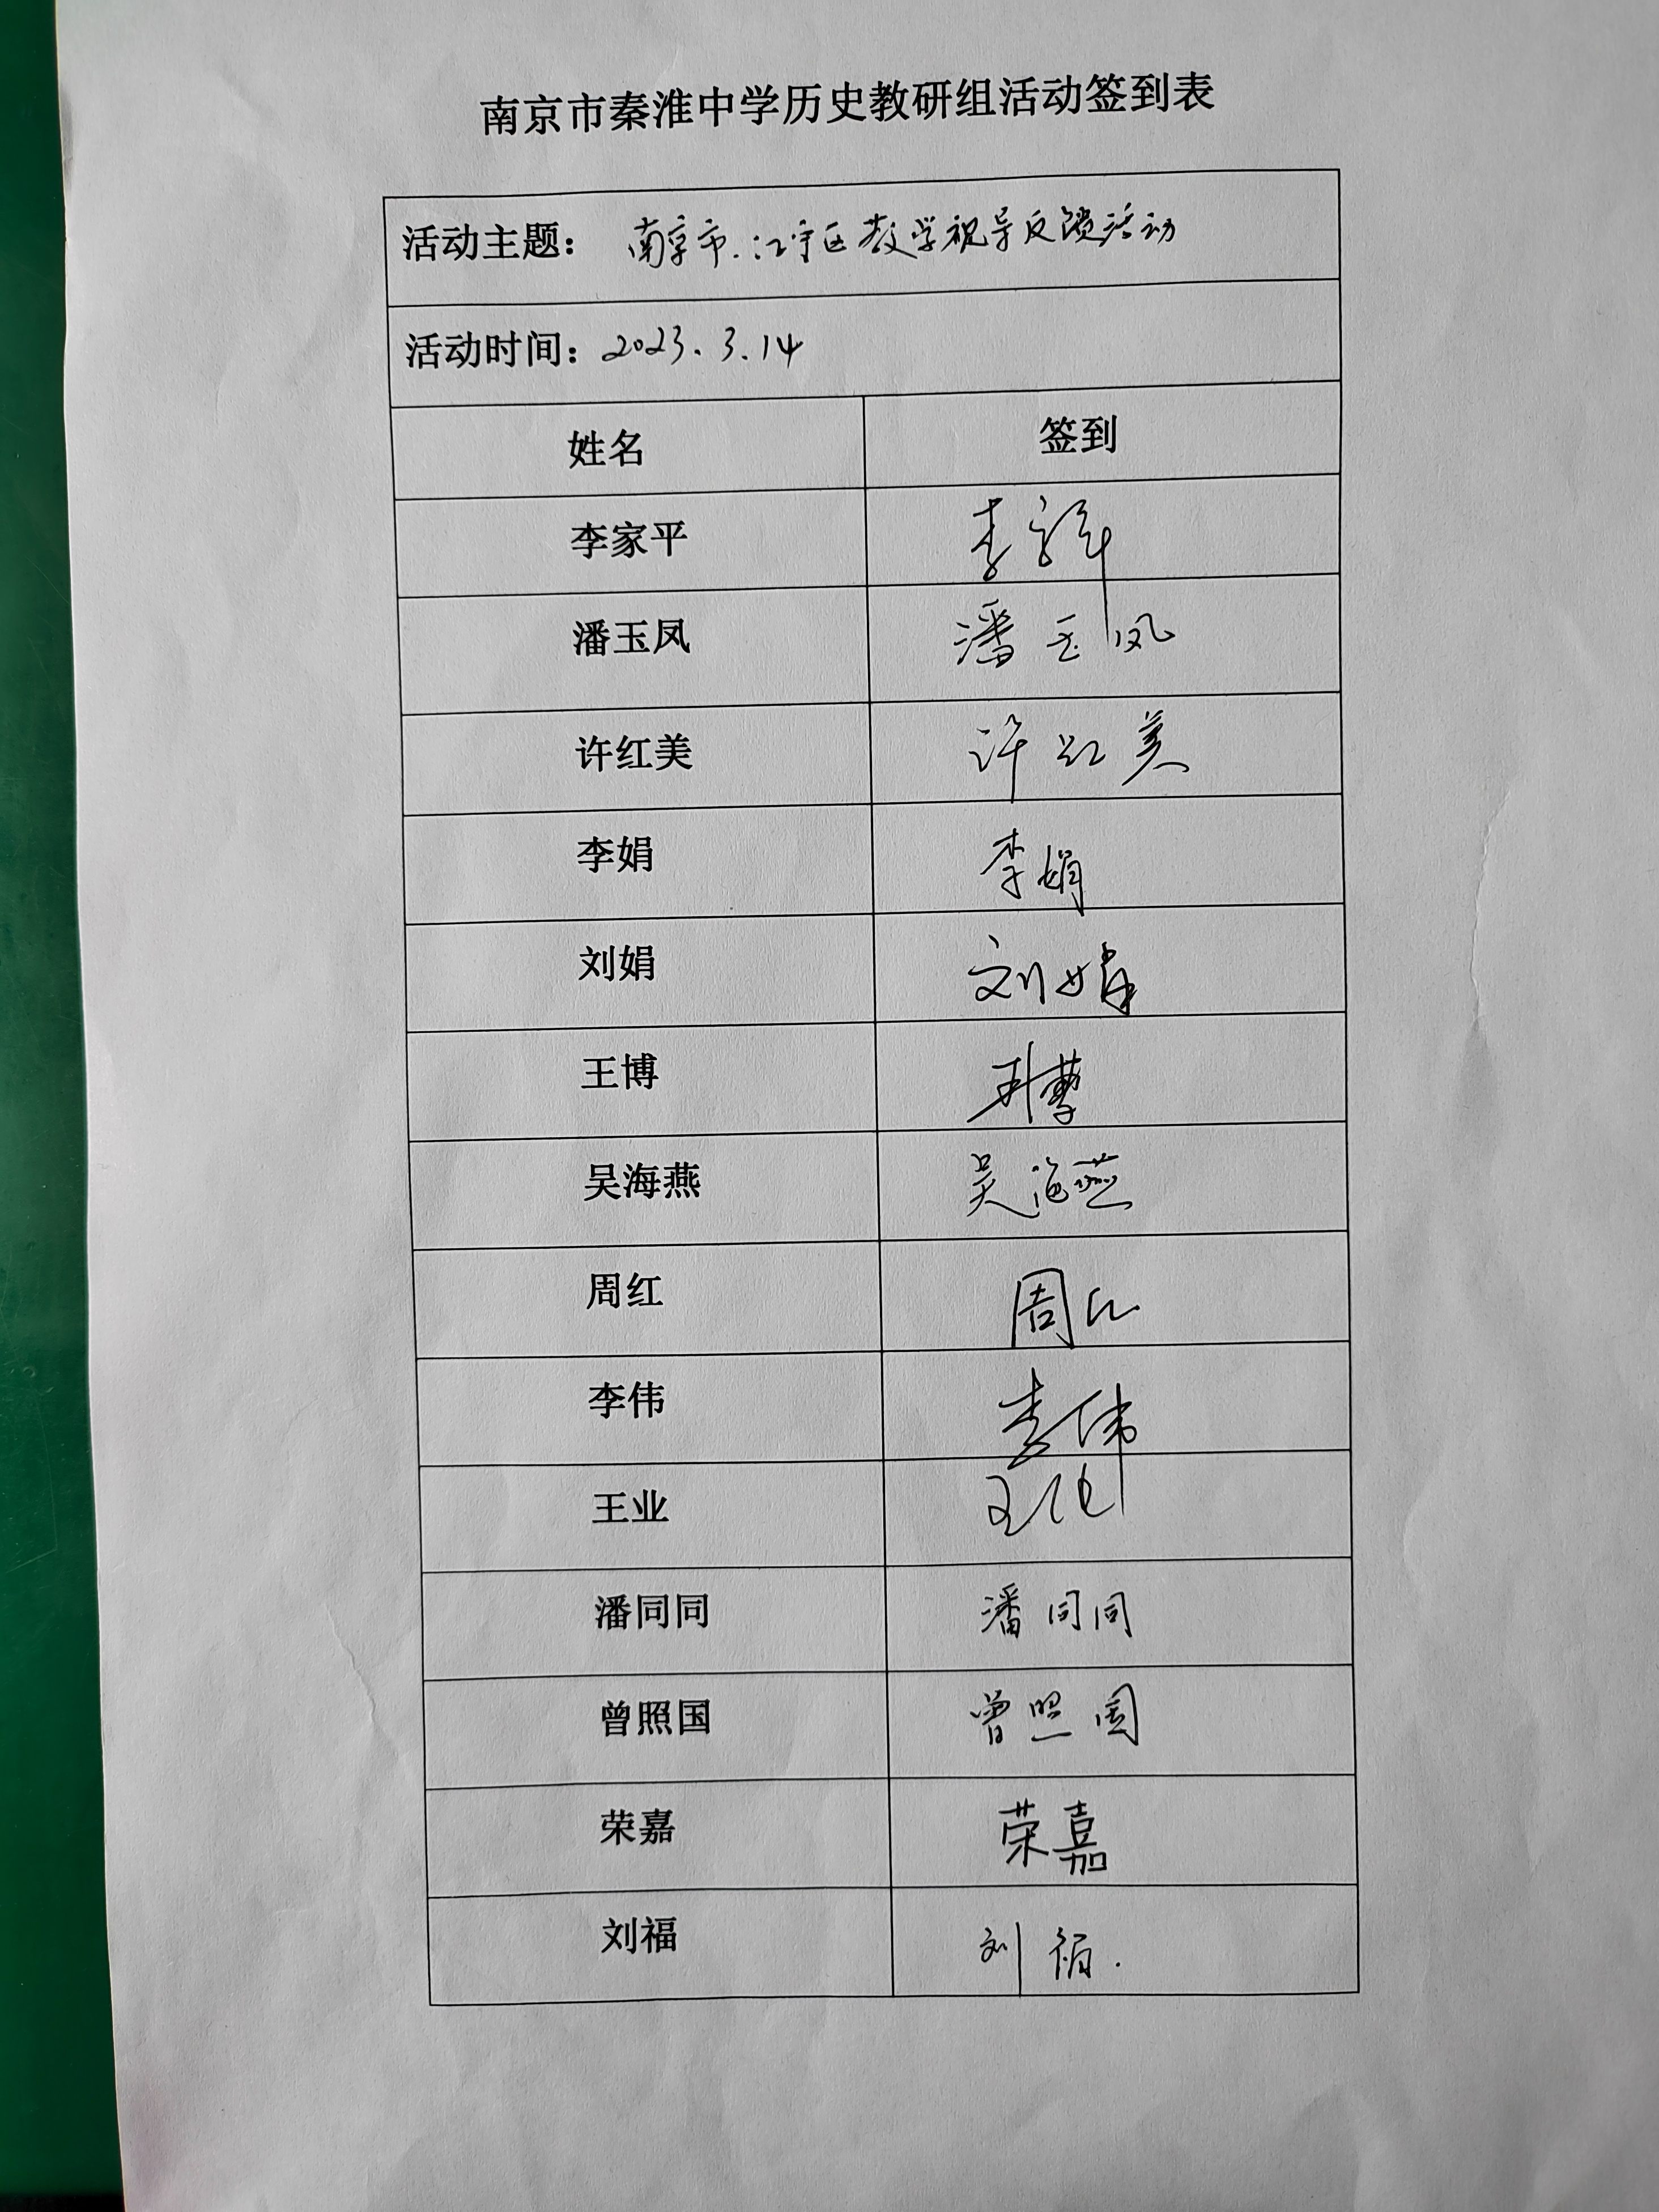 南京市秦淮中学历史教研组活动签到表
活动主题： 南京市、江宁区教学视导反馈活动
活动时间：2023.3.14
姓名 签到
李家平 李家平
潘玉凤 潘玉凤
许红美 许红美
李娟 李娟
刘娟 刘娟
王博 王博
吴海燕 吴海燕
周红 周红
李伟 李伟
王业
潘同同 潘同同
曾照国 曾照国
荣嘉 荣嘉
刘福 刘福.